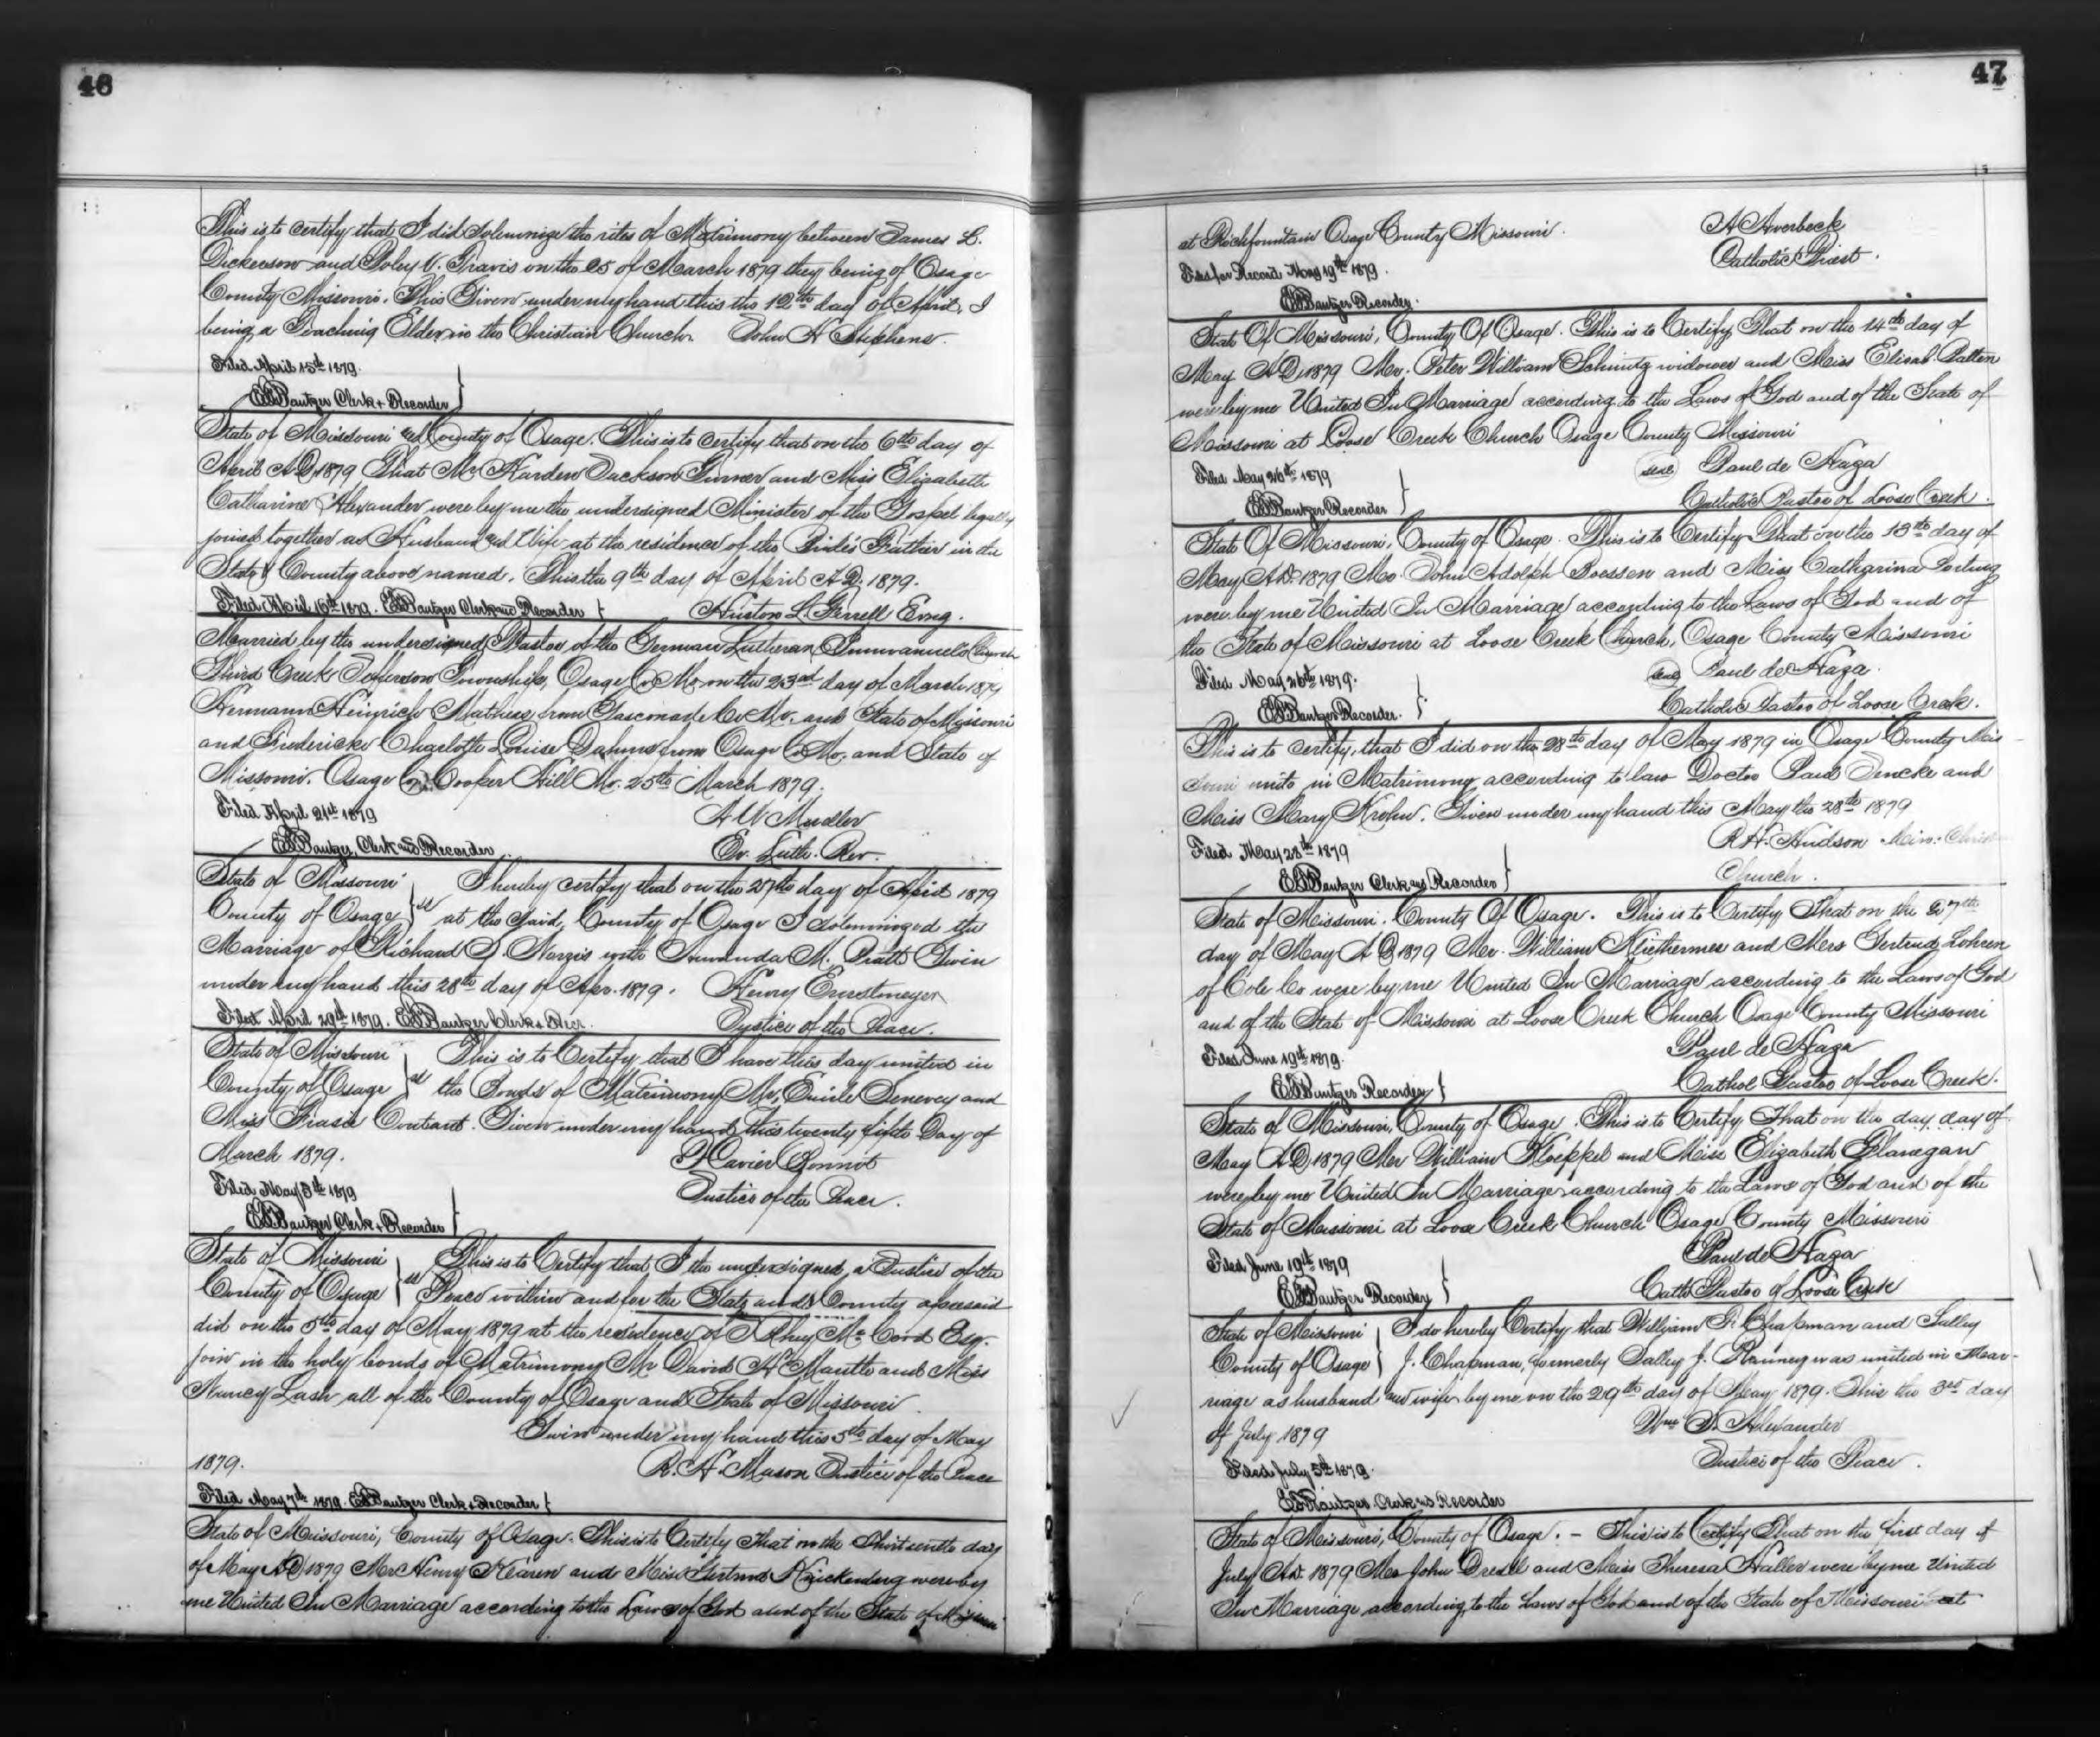 46
This is to certify that I did solemnize the rites of Matrimony between James L.
Dickerson and V. Travis on the 25 of March 1879 they being of Osage
County Missouri. This Given under my hand this the 12th day of April, I
being a Teaching Elder in the Christian Church. John H Stephens.
Filed April 15th 1879.
Clerk + Recorder
State of Missouri and County of Osage. This is to certify that on the 6th day of
April A.D. 1879 That Mr Harden Jackson Turner and Miss Elizabeth
Catharine Alexander were by me the undersigned Minister of the Gospel legally
joined together as Husband and Wife at the residence of the Bride's Father in the
State & County above named. This the 9th day of April A.D. 1879.
Filed April 16th 1879. Clerk and Recorder Huston L. Ferrell Evng.
Married by the undersigned Pastor of the German Lutheran Immanuels Church
Third Creek Jefferson Township, Osage Co Mo. on the 23rd day of March 1879
Hermann Heinrich from Gasconade Co Mo. and State of Missouri
and Fredericke Charlotte Louise Dahms from Osage Co Mo. and State of
Missouri. Osage Co, Cooper Hill Mo. 25th March 1879.
Filed April 21st 1879
A W Mudler
Clerk and Recorder
Ev. Luth. Rev.
State of Missouri
County of Osage ss I hereby certify that on the 27th day of April 1879
at the Said, County of Osage I solemnized the
Marriage of Richard S. with Amanda M. Pratt Given
under my hand this 28th day of Apr. 1879. Henry Ernstmeyer
Filed April 29th 1879. Clerk + Recr. Justice of the Peace.
State of Missouri
County of Osage ss This is to Certify that I have this day united in
the Bonds of Matrimony Mr. and
Miss Given under my hand this twenty fifth Day of
March 1879. Xavier Bonnot
Filed May 5th 1879
Justice of the Peace.
Clerk + Recorder
State of Missouri
County of Osage ss This is to Certify that I the undersigned, a Justice of the
Peace within and for the State and County aforesaid
did on the 5th day of May 1879 at the residence of Mc Cord Esq.
join in the holy bonds of Matrimony Mr David and Miss
Nancy Lash all of the County of Osage and State of Missouri.
Given under my hand this 5th day of May
1879. R. H. Mason Justice of the Peace
Filed May 7th 1879. Clerk + Recorder
State of Missouri, County of Osage. This is to Certify That on the Thirteenth day
of May AD 1879 Mr Henry and Miss Gertrud were by
me United In Marriage according to the Laws of God and of the State of Missouri
47
at Richfountain Osage County Missouri. A Averbeck
Catholic Priest.
Filed for Record May 19th 1879.
Recorder.
State Of Missouri, County Of Osage. This is to Certify That on the 14th day of
May A.D. 1879 Mr. Peter William Schmitz widower and Miss Elisab. Patten
were by me United In Marriage according to the Laws of God and of the State of
Missouri at Loose Creek Church Osage County Missouri
Filed May 26th 1879
seal Paul de Haza
Recorder
Catholic Pastor of Loose Creek.
State Of Missouri, County of Osage. This is to Certify That on the 13th day of
May A.D. 1879 Mr. John Adolph Boessen and Miss Catharina Porting
were by me United In Marriage according to the Laws of God and of
the State of Missouri at Loose Creek Church, Osage County Missouri
Filed May 26th 1879.
seal Paul de Haza.
Recorder.
Catholic Pastor of Loose Creek.
This is to certify, that I did on the 28th day of May 1879 in Osage County Mis-
souri unite in Matrimony according to law Doctor Paul and
Miss Mary Krohn. Given under my hand this May the 28th 1879
Filed May 28th 1879
R H. Hudson Min. Christ
Clerk and Recorder
Church.
State of Missouri. County Of Osage. This is to Certify That on the 27th
day of May A.D. 1879 Mr. William Kliethermes and Mrs Gertrud Lohren
of Cole Co were by me United In Marriage according to the Laws of God
and of the State of Missouri at Loose Creek Church Osage County Missouri
Filed June 19th 1879.
Paul de Haza
Recorder
Cathol. Pastor of Loose Creek.
State of Missouri, County of Osage. This is to Certify That on the day day of
May A.D. 1879 Mr William Koeppel and Miss Elizabeth Flanegan
were by me United In Marriage according to the Laws of God and of the
State of Missouri at Loose Creek Church Osage County Missouri
Filed June 19th 1879
Paul de Haza
Recorder
Cath Pastor of Loose Creek
State of Missouri
County of Osage I do hereby Certify that William F. Chapman and Salley
J. Chapman, formerly Salley J. Ranney was united in Mar-
riage as husband and wife by me on the 29th day of May 1879. This the 3rd day
of July 1879 Wm S. Alexander
Filed July 5th 1879.
Justice of the Peace.
Clerk and Recorder
State of Missouri, County of Osage. - This is to Certify That on the first day of
July A.D. 1879 Mr John Dresel and Miss Theresa Haller were by me United
In Marriage according to the Laws of God and of the State of Missouri at